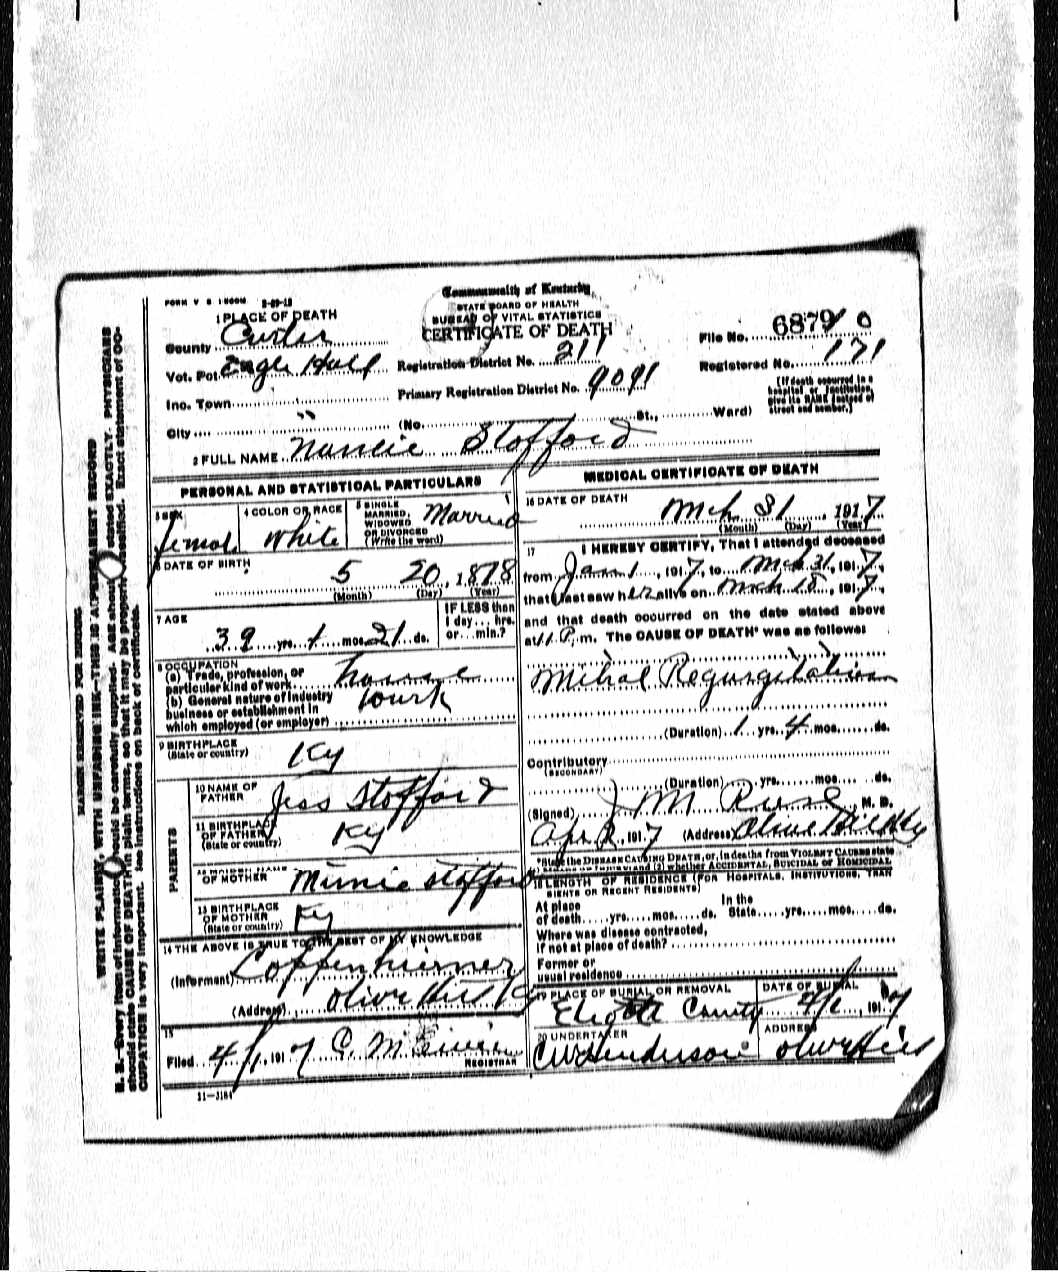 FORM V S 1-500M 2-29-12
Commonwealth of Kentucky
STATE BOARD OF HEALTH
BUREAU OF VITAL STATISTICS
CERTIFICATE OF DEATH
1 PLACE OF DEATH
County Carter
Vot. Pct.
Registration District No. 211
Primary Registration District No. 9091
File No. 6879
Registered No. 171
[If death occurred in a hospital or institution, give its NAME instead of street and number.]
Inc. Town
City (No. St., Ward)
2 FULL NAME Nannie Stofford
PERSONAL AND STATISTICAL PARTICULARS
3 SEX
femal
4 COLOR OR RACE
White
5 SINGLE MARRIED, WIDOWED OR DIVORCED (Write the word)
Married
6 DATE OF BIRTH
5 20, 1878
(Month) (Day) (Year)
7 AGE
39 yrs. mos. 21 ds.
IF LESS than 1 day... hrs. or... min.?
8 OCCUPATION
(a) Trade, profession, or particular kind of work
(b) General nature of industry business or establishment in which employed (or employer)
house work
9 BIRTHPLACE (State or country)
Ky
PARENTS
10 NAME OF FATHER
Jess Stofford
11 BIRTHPLACE OF FATHER (State or country)
Ky
OF MOTHER
Minnie Stofford
13 BIRTHPLACE OF MOTHER (State or country)
Ky
14 THE ABOVE IS TRUE TO THE BEST OF MY KNOWLEDGE
(Informant)
(Address) Olive Hill Ky
15
Filed 4/1, 1917
REGISTRAR
11-3184
MEDICAL CERTIFICATE OF DEATH
16 DATE OF DEATH
Mch 31, 1917
(Month) (Day) (Year)
17 I HEREBY CERTIFY, That I attended deceased
from Jan 1, 1917, to Mch 31, 1917,
that I last saw her alive on Mch 18, 1917,
and that death occurred on the date stated above
at 11 P. m. The CAUSE OF DEATH* was as follows:
Mitral Regurgitation
(Duration) 1 yrs. 4 mos. ds.
Contributory (SECONDARY)
(Duration) yrs. mos. ds.
(Signed) J M Rose, M. D.
Apr 2, 1917 (Address) Olive Hill Ky
*State the DISEASE CAUSING DEATH, or, in deaths from VIOLENT CAUSES state
and (2) whether ACCIDENTAL, SUICIDAL or HOMICIDAL
18 LENGTH OF RESIDENCE (FOR HOSPITALS, INSTITUTIONS, TRANSIENTS OR RECENT RESIDENTS)
At place of death yrs. mos. ds. In the State yrs. mos. ds.
Where was disease contracted,
If not at place of death?
Former or usual residence
19 PLACE OF BURIAL OR REMOVAL
Elliott County
DATE OF BURIAL
4/1, 1917
20 UNDERTAKER
CW Henderson
ADDRESS
Olive Hill
MARGIN RESERVED FOR BINDING
WRITE PLAINLY, WITH UNFADING INK—THIS IS A PERMANENT RECORD
N. B. Every item of information should be carefully supplied. AGE should be stated EXACTLY. PHYSICIANS
should state CAUSE OF DEATH in plain terms, so that it may be properly classified. Exact statement of OC-
CUPATION is very important. See instructions on back of certificate.